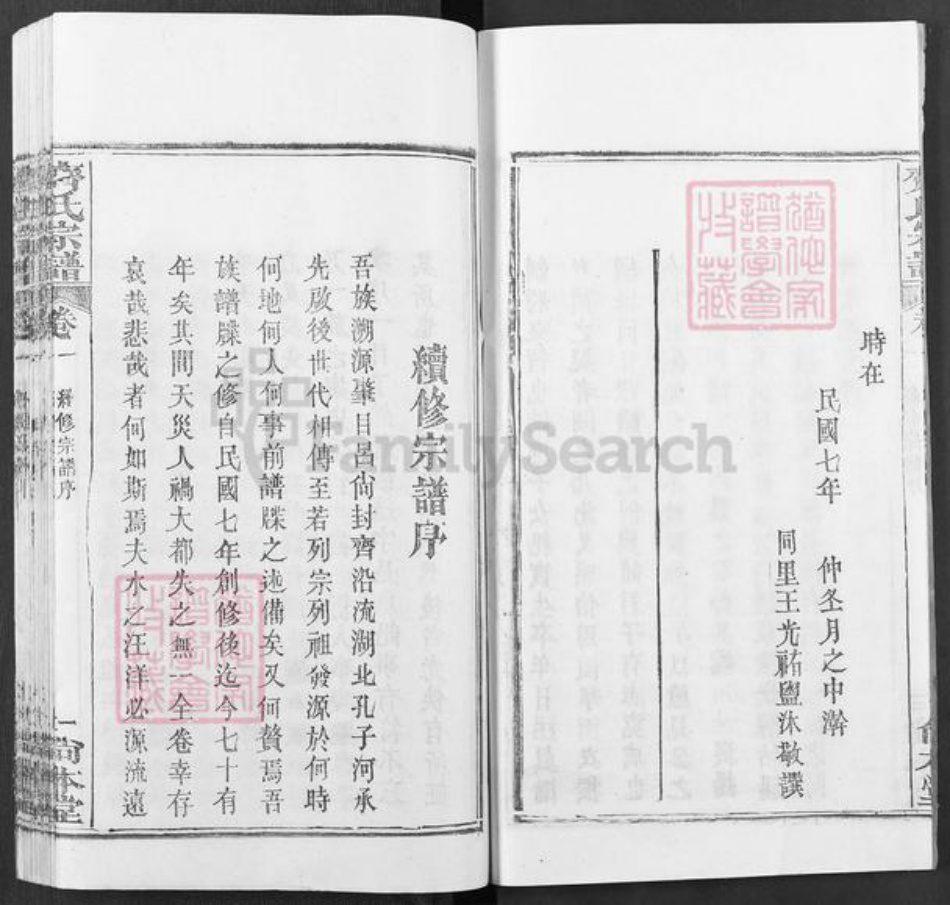 時在
民國七年　仲冬月之中澣
同里王光祐盥沐敬譔
續修宗譜序
吾族溯源肇目呂尙封齊沿流湖北孔子河承
先啟後世代相傳至若列宗列祖發源於何時
何地何人何事前譜牒之述備矣又何贅焉吾
族譜牒之修自民國七年創修後迄今七十有
年矣其間天災人禍大都失之無一全卷幸存
哀哉悲哉者何如斯焉夫水之汪洋必源流遠
齊氏宗譜
卷一
續修宗譜序
一
尙本堂
FamilySearch